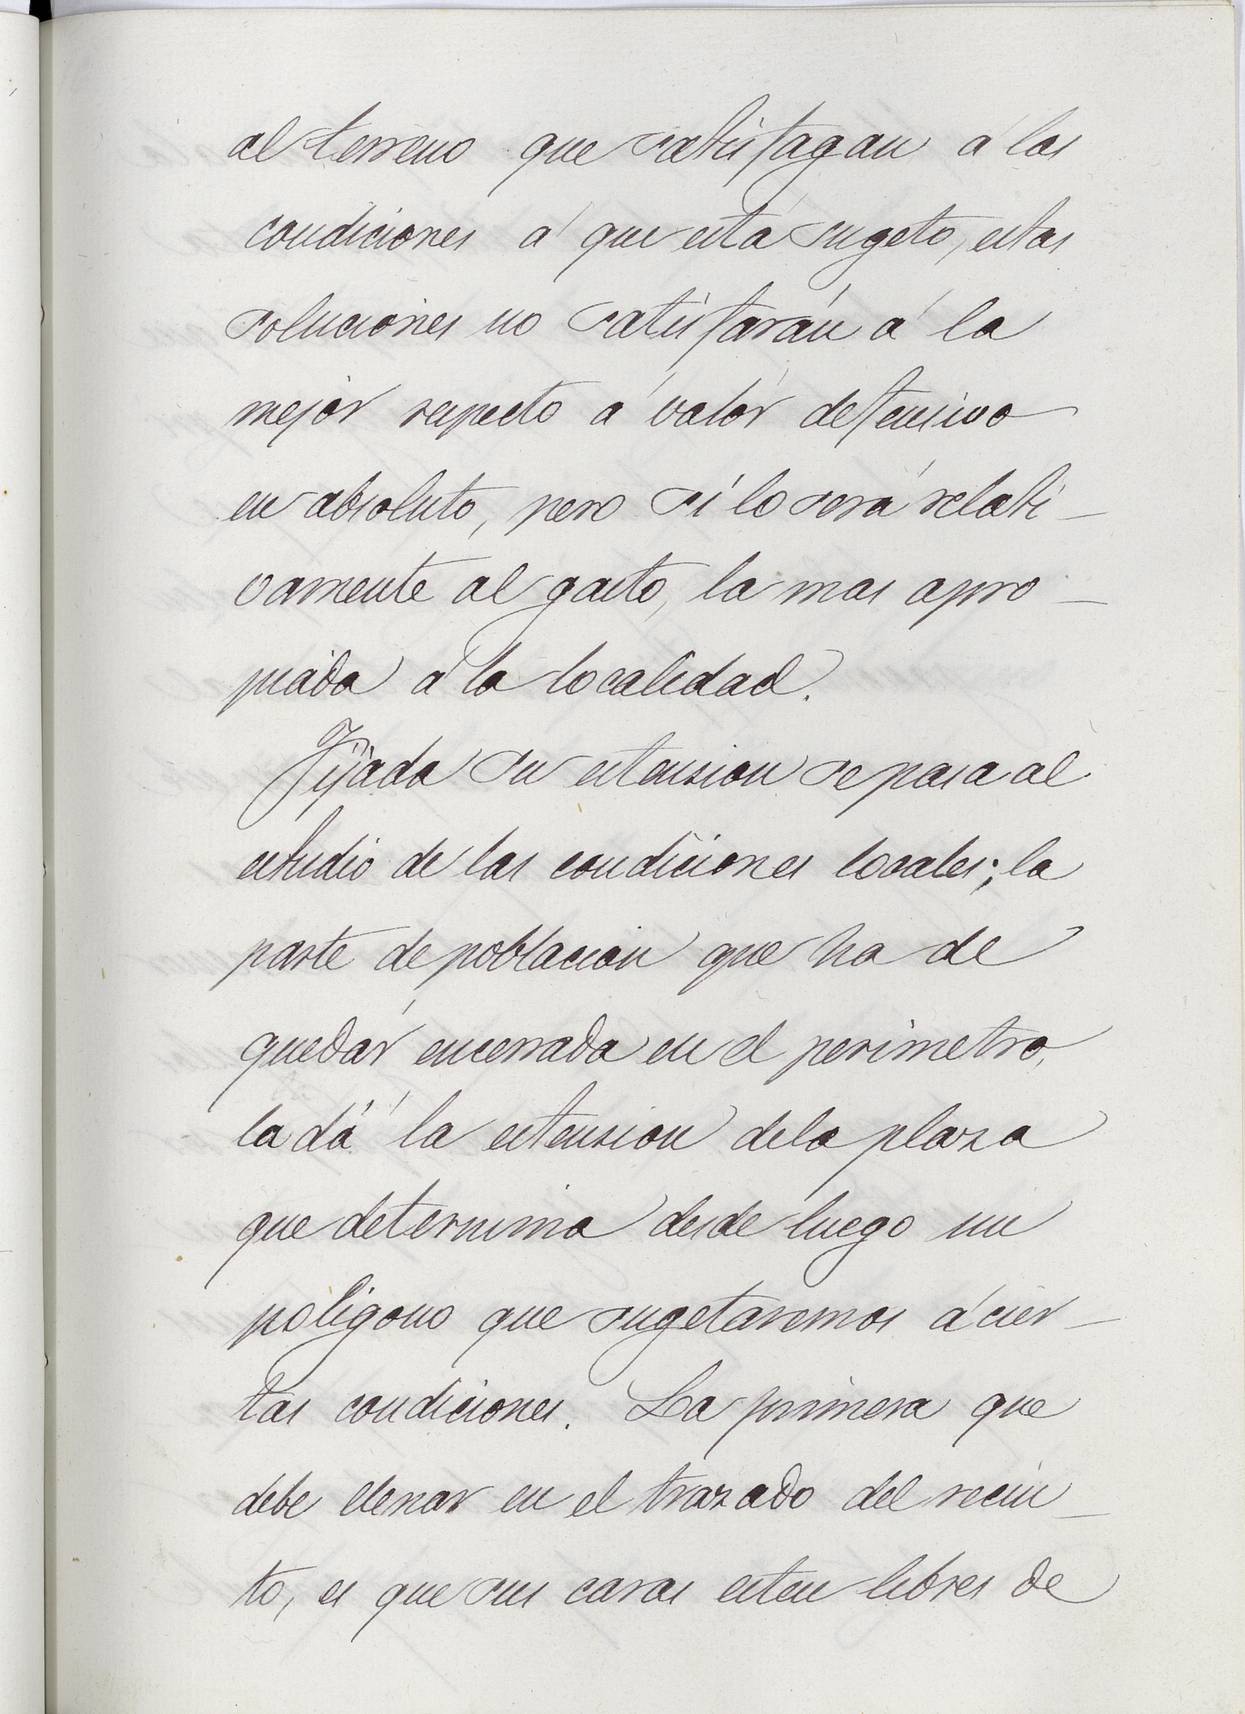 al terreno que satisfagan á las
condiciones á que está sugeto, estas
soluciones no satisfarán á la
mejór respecto á valór defensivo
en absoluto, pero sí lo será relati-
vamente al gasto, la mas apro-
piada á la localidad.
Fijada su estension se pasa al
estudio de las condiciones locales; la
parte de poblacion que ha de
quedár encerrada en el perimetro,
la dá la estension de la plaza
que determina desde luego un
poligono que sugetaremos á ciér-
tas condiciones. La primera que
debe llenar en el trazado del recin-
to, es que sus caras esten libres de